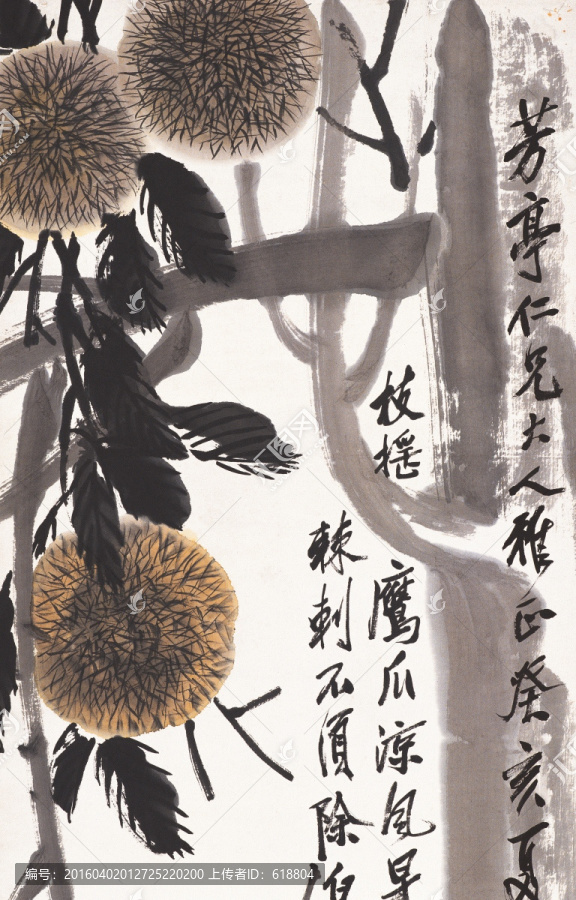 芳亭仁兄大人雅正癸亥夏
枝摇
鹰爪凉风早
棘刺不须除
编号：20160402012725220200 上传者ID：618804